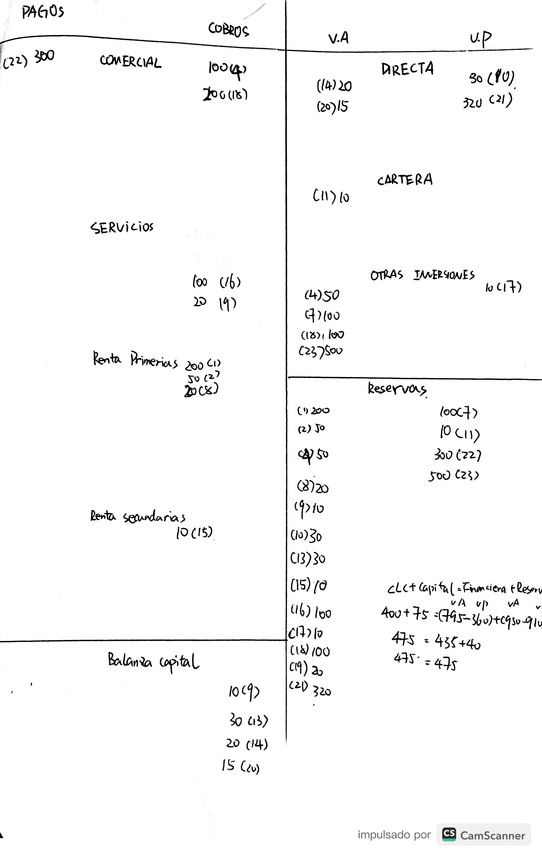 PAGOS
COBROS
(22) 300 COMERCIAL 100(4)
200(18)
SERVICIOS
100 (16)
20 (9)
Renta Primerias 200 (1)
50 (2)
20(8)
Renta secundarias
10(15)
Balanza capital
10(9)
30 (13)
20 (14)
15 (20)
V.A U.P
DIRECTA
(14) 20 30 (10)
(20) 15 320 (21)
CARTERA
(11) 10
OTRAS INVERSIONES
10(17)
(4) 50
(7) 100
(18) 100
(23) 500
Reservas
(1) 200 100(7)
(2) 50 10 (11)
(4) 50 300 (22)
(8) 20 500 (23)
(9) 10
(10) 30
(13) 30
(15) 10
(16) 100
(17) 10
(18) 100
(19) 20
(21) 320
CLC + Capital = Financiera + Reser
VA UP VA
400 + 75 = (795-360)+(950-910
475 = 435+40
475 = 475
impulsado por CS CamScanner